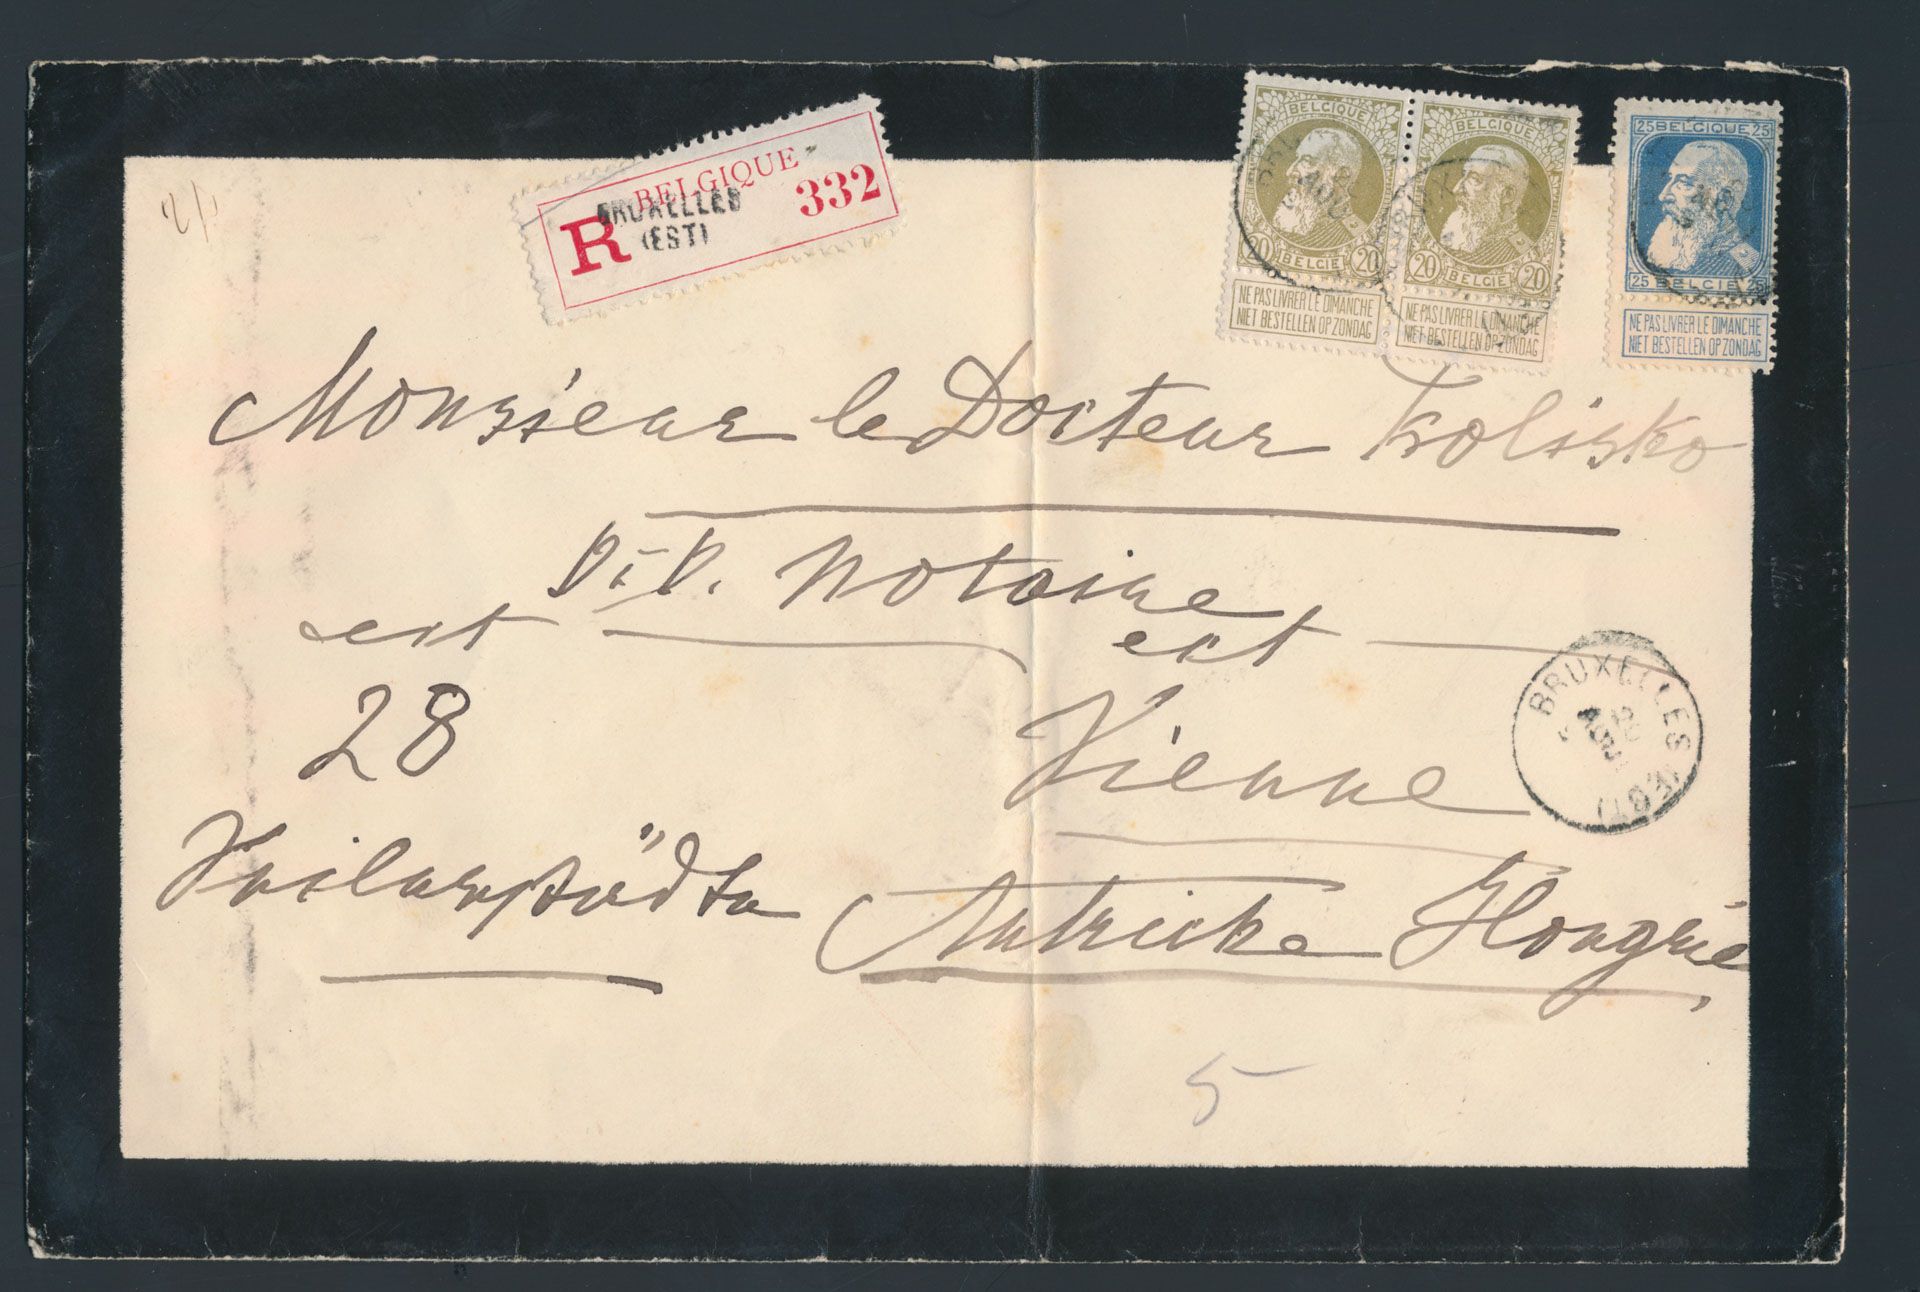 BELGIQUE
R BRUXELLES 332
(EST)
BELGIQUE
20 20
BELGIE
NE PAS LIVRER LE DIMANCHE
NIET BESTELLEN OP ZONDAG
BELGIQUE
20 20
BELGIE
NE PAS LIVRER LE DIMANCHE
NIET BESTELLEN OP ZONDAG
25 BELGIQUE 25
25 BELGIE 25
NE PAS LIVRER LE DIMANCHE
NIET BESTELLEN OP ZONDAG
Monsieur le Docteur Kolisko
Notaire
ect ect
28 Vienne
BRUXELLES (EST)
12
AOU
Autriche Hongrie
5